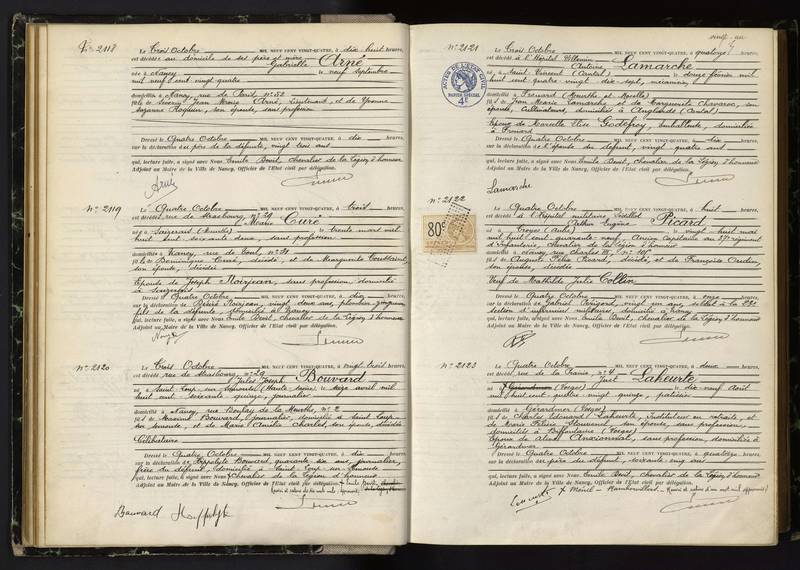 N° 2118
Le Trois Octobre MIL NEUF CENT VINGT-QUATRE, à dix huit heures,
est décédée au domicile de ses père et mère
Gabrielle Arné
née à Nancy le neuf Septembre
mil neuf cent vingt quatre
domiciliée à Nancy, rue de Toul, n° 52
fille de Jean Marie Arné, Lieutenant, et de Yvonne
Suzanne son épouse, sans profession
Dressé le Quatre Octobre MIL NEUF CENT VINGT-QUATRE, à dix heures,
sur la déclaration du père de la défunte, vingt trois ans
qui, lecture faite, a signé avec Nous Emile Bovit, chevalier de la Légion d'honneur
Adjoint au Maire de la Ville de Nancy, Officier de l'État civil par délégation.
Arné
N° 2119
Le Quatre Octobre MIL NEUF CENT VINGT-QUATRE, à trois heures,
est décédée rue de Strasbourg, n° 29
Marie Curé
née à Saizerais (Meurthe) le trente mars mil
huit cent soixante deux, sans profession
domiciliée à Nancy, rue de Toul, n° 31
fille de Dominique Curé, décédé, et de Marguerite Toussaint,
son épouse, décédée
Epouse de Joseph Noirjean, sans profession, domicilié
à
Dressé le Quatre Octobre MIL NEUF CENT VINGT-QUATRE, à dix heures,
sur la déclaration de Noirjean, vingt deux ans,
fils de la défunte, domicilié à Nancy
qui, lecture faite, a signé avec Nous Emile Bovit, chevalier de la Légion d'honneur
Adjoint au Maire de la Ville de Nancy, Officier de l'État civil par délégation.
N° 2120
Le Trois Octobre MIL NEUF CENT VINGT-QUATRE, à vingt trois heures,
est décédé rue de Strasbourg, n° 29
Jules Joseph Bouvard
né à Saint Loup sur Semouse (Haute Saône) le seize avril mil
huit cent soixante quinze, journalier
domicilié à Nancy, rue Boulay de la Meurthe, n° 2
fils de Maximin Bouvard, journalier, domicilié à Saint Loup
sur Semouse, et de Marie Amélie Charles, son épouse, décédée
Célibataire
Dressé le Quatre Octobre MIL NEUF CENT VINGT-QUATRE, à dix heures,
sur la déclaration de Hippolyte Bouvard, quarante six ans, journalier,
frère du défunt, domicilié à Saint Loup sur Semouse
qui, lecture faite, a signé avec Nous Chevalier de la Légion d'honneur
Adjoint au Maire de la Ville de Nancy, Officier de l'État civil par délégation. + Emile Bovit
Bouvard Hippolyte
vingt-un
N° 2121
Le Trois Octobre MIL NEUF CENT VINGT-QUATRE, à quatorze heures,
est décédé à l'Hôpital Villemin
Antoine Lamarche
né à Saint Vincent (Cantal) le douze février mil
huit cent quatre vingt dix sept, mécanicien
domicilié à Frouard (Meurthe et Moselle)
fils de Jean Marie Lamarche et de Marguerite Chavaroc, son
épouse, Cultivateurs, domiciliés à Anglards (Cantal)
Epoux de Marcelle Elise Godefroy, emballeuse, domiciliée
à Frouard
Dressé le Quatre Octobre MIL NEUF CENT VINGT-QUATRE, à dix heures,
sur la déclaration de l'épouse du défunt, vingt quatre ans
qui, lecture faite, a signé avec Nous Emile Bovit, chevalier de la Légion d'honneur
Adjoint au Maire de la Ville de Nancy, Officier de l'État civil par délégation.
Lamarche
ACTES DE L'ETAT CIVIL
PAPIER SPÉCIAL
4F
N° 2122
80c
Le Quatre Octobre MIL NEUF CENT VINGT-QUATRE, à huit heures,
est décédé à l'Hôpital militaire Sédillot
Arthur Eugène Picard
né à Troyes (Aube) le vingt huit mai
mil huit cent quarante neuf, Ancien Capitaine au 37e régiment
d'Infanterie, Chevalier de la Légion d'honneur
domicilié à Nancy, rue Charles III, n°
fils de Auguste Félix Picard, décédé, et de Françoise
son épouse, décédée
Veuf de Mathilde Julie Collin
Dressé le Quatre Octobre MIL NEUF CENT VINGT-QUATRE, à onze heures,
sur la déclaration de Gabriel vingt un ans, soldat à la
Section d'infirmiers militaires, domicilié à Nancy
qui, lecture faite, a signé avec Nous Emile Bovit, chevalier de la Légion d'honneur
Adjoint au Maire de la Ville de Nancy, Officier de l'État civil par délégation.
N° 2123
Le Quatre Octobre MIL NEUF CENT VINGT-QUATRE, à deux heures,
est décédé rue de la Prairie, n°
Lakeurte
né à Gérardmer (Vosges) le dix neuf Août
mil huit cent quatre vingt quinze, pâtissier
domicilié à Gérardmer (Vosges)
fils de Charles Edouard Lakeurte, Instituteur en retraite, et
de Marie Félicie son épouse, sans profession,
domiciliés à Biffontaine (Vosges)
Epoux de Alice sans profession, domiciliée à
Gérardmer
Dressé le Quatre Octobre MIL NEUF CENT VINGT-QUATRE, à quatorze heures,
sur la déclaration du père du défunt, soixante cinq ans
qui, lecture faite, a signé avec Nous Emile Bovit, chevalier de la Légion d'honneur
Adjoint au Maire de la Ville de Nancy, Officier de l'État civil par délégation.